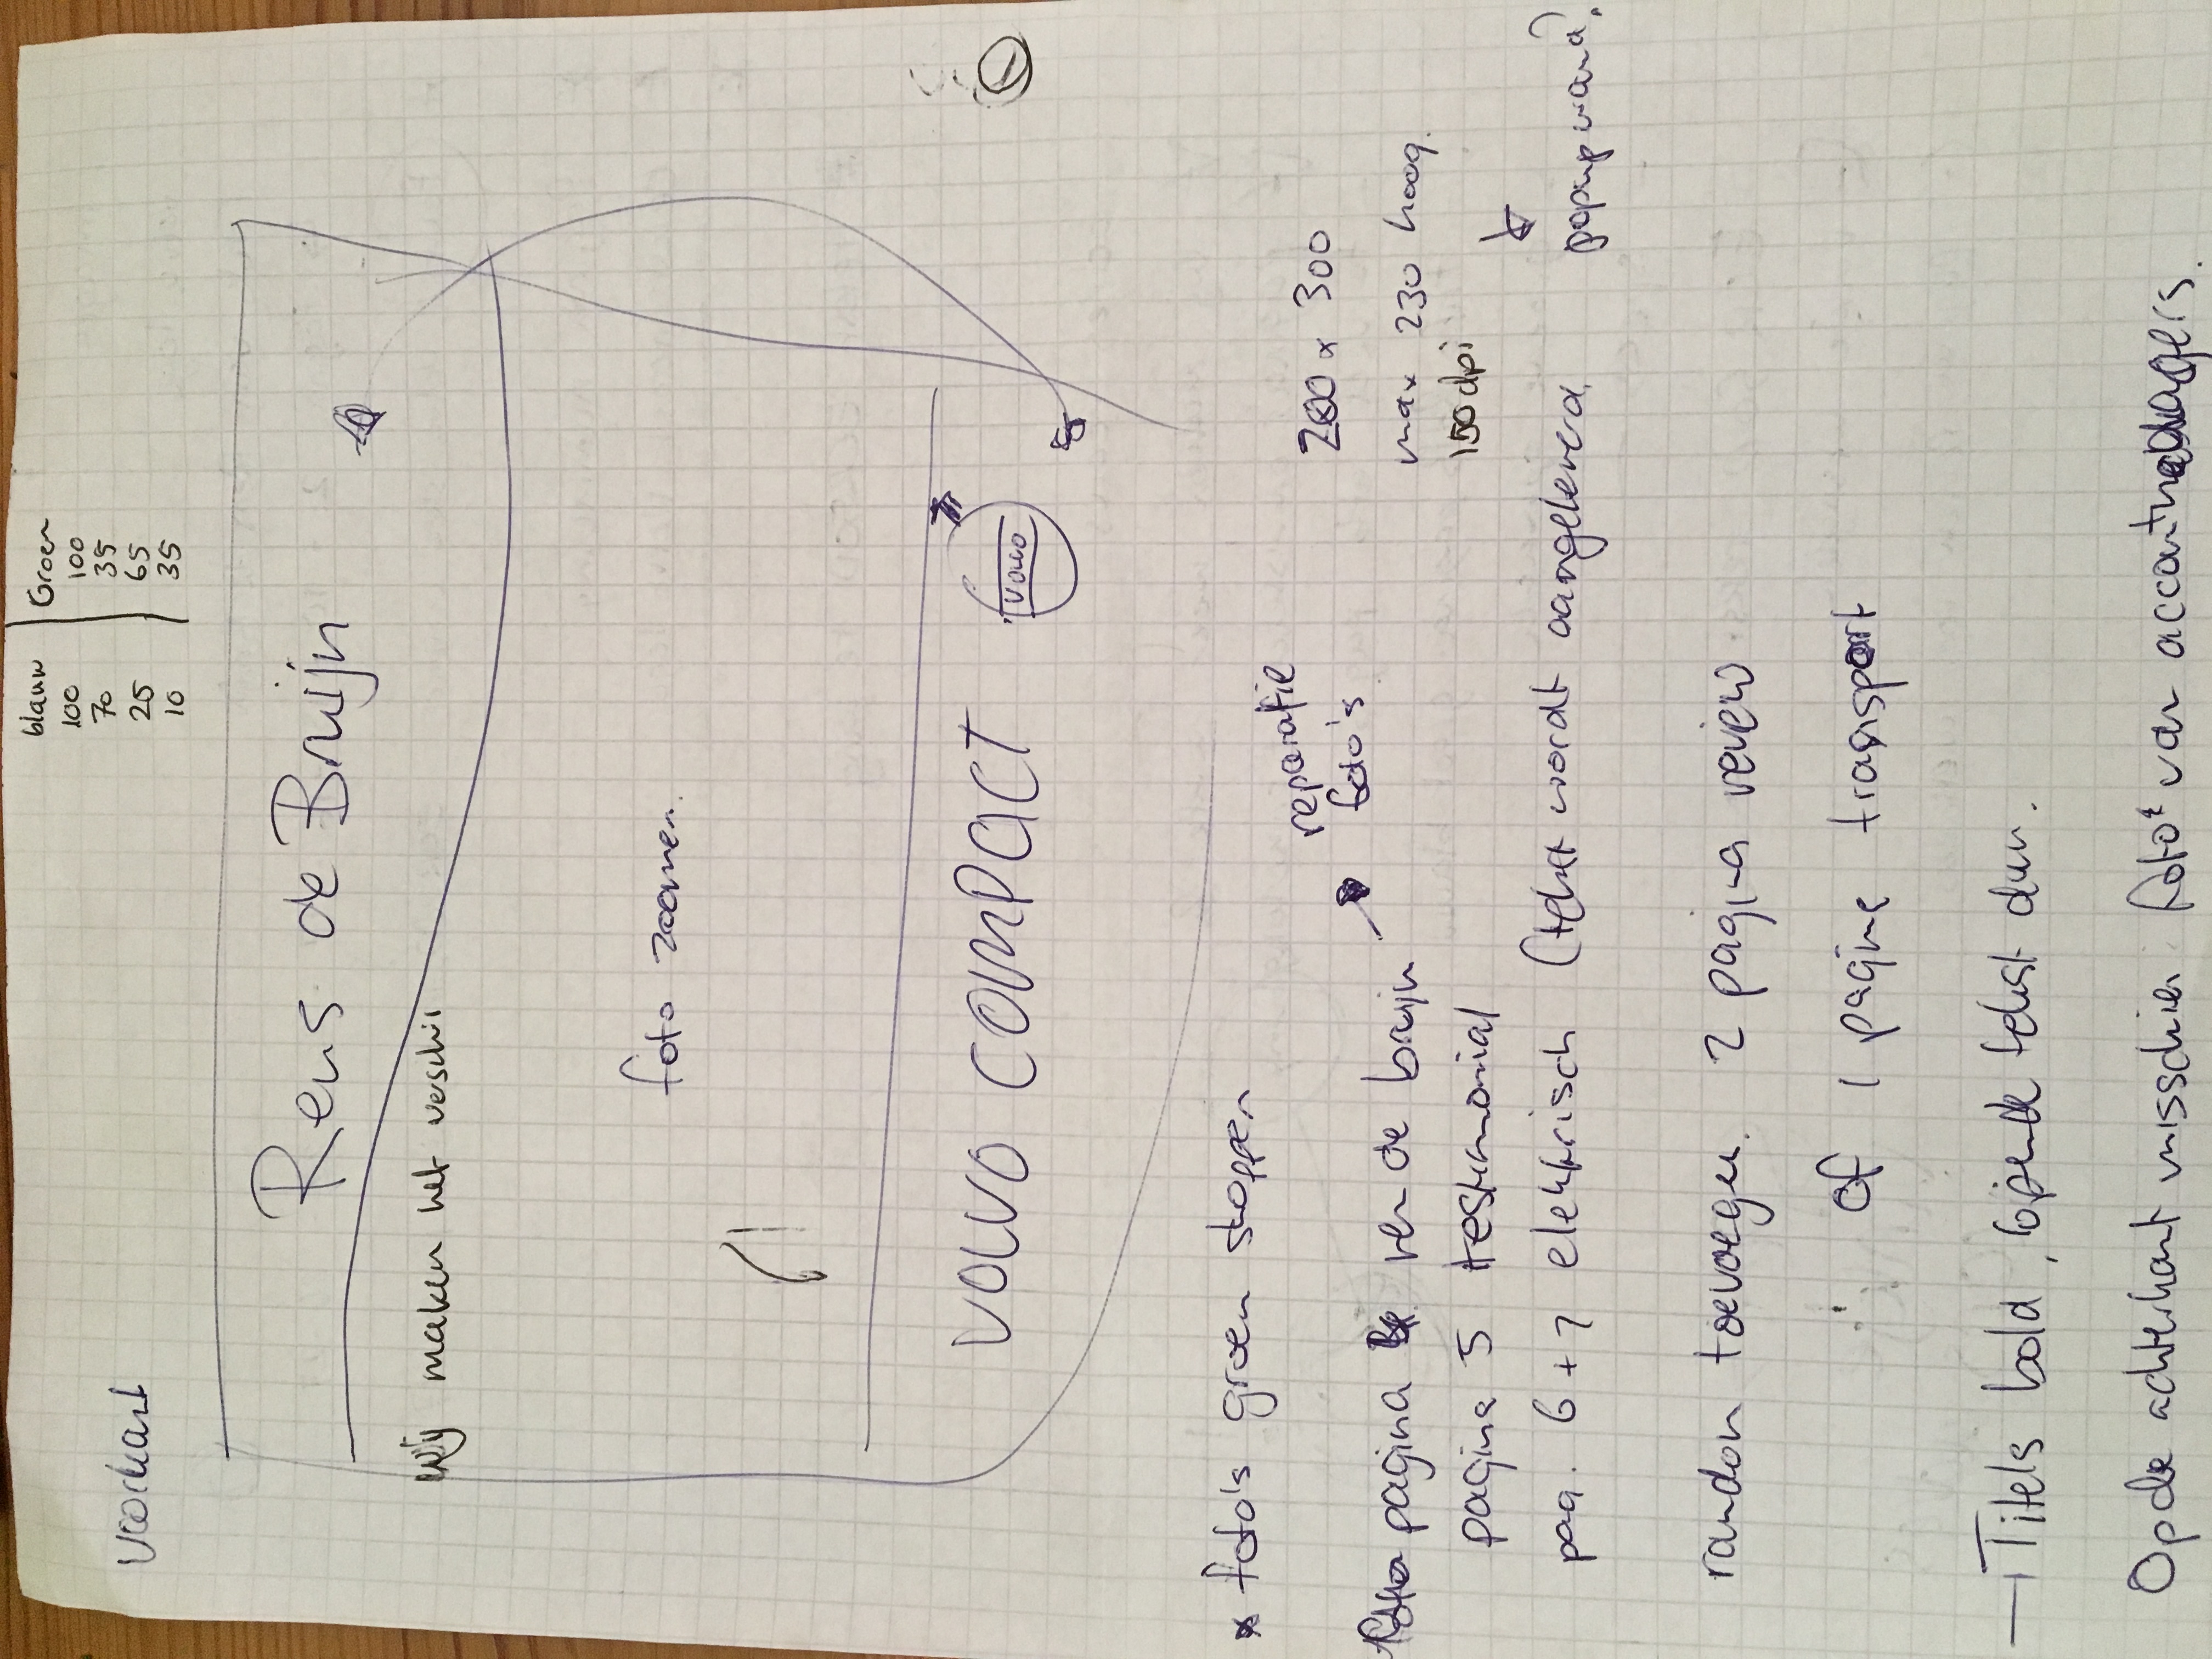 blauw | Groen
100 100
70 35
25 65
10 35
voorkant
Rens de Bruijn
Wij maken het verschil
foto zoomen.
VOLVO COMPACT
VOLVO
* foto's groen stoppen
reparatie
foto's
200 x 300
max 230 hoog.
150 dpi
pagina ren de bruijn
pagina 5 testimonial
pag. 6 + 7 elektrisch (tekst wordt aangeleverd
popup wand)
random toevoegen. 2 pagina review
of 1 pagina transport
— Titels bold, lopende tekst dun.
Op de achterkant misschien foto's van accountmanagers.